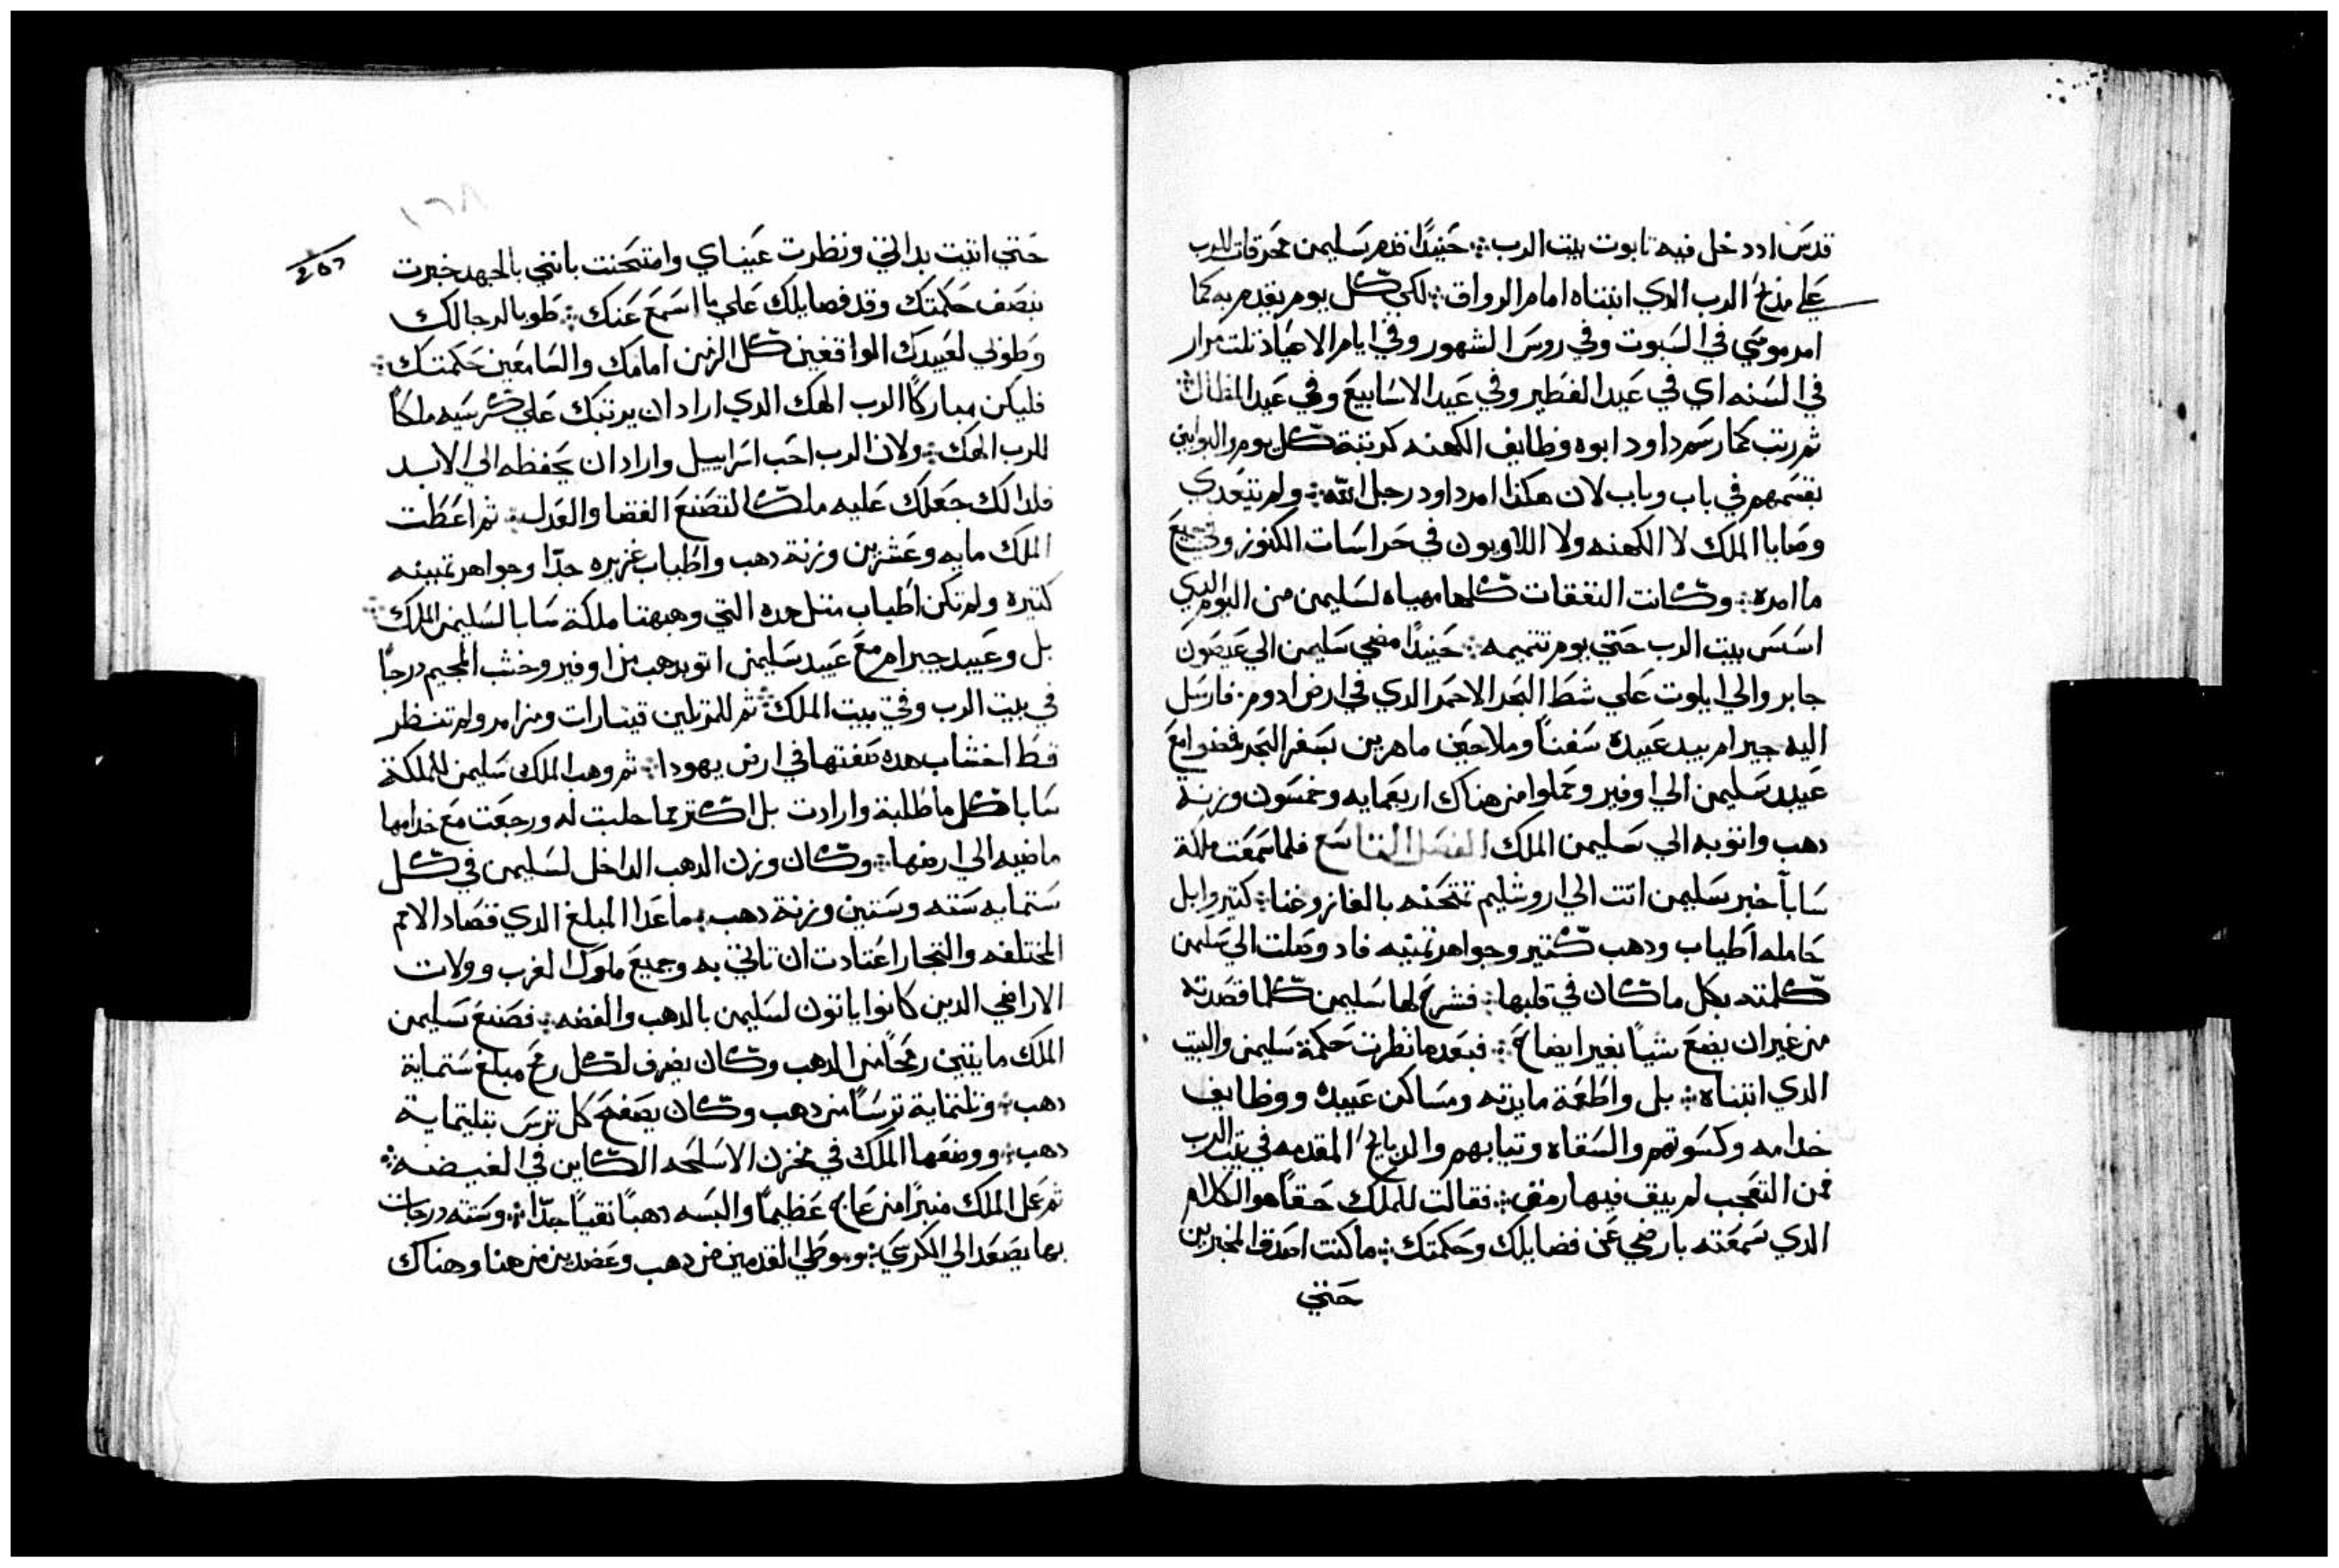 قدس اد دخل فيه تابوت بيت الرب ܀ حنيدًا قدم سليمن محرقات للرب
علي مذبح الرب الدي ابتناه امام الرواق ܀ لكي كل يوم يقدم به كما
امر موسي في السبوت وفي روس الشهور وفي ايام الاعياد تلت مرار
في السنه اي في عيد الفطير وفي عيد الاسابيع وفي عيد المظال ܀
ثم رتب كما رسم داود ابوه وظايف الكهنه كرتبة كل يوم والبوابين
بقسمهم في باب وباب لان هكذا امر داود رجل الله ܀ ولم تتعدي
وصايا الملك لا الكهنه ولا اللاويون في حراسات الكنوز وفي جميع
ما امره ܀ وكانت النفقات كلها مهياه لسليمن من اليوم الدي
اسس بيت الرب حتي يوم تتميمه ܀ حنيدًا مضي سليمن الي عيصون
جابر والي ايلوت علي شط البحر الاحمر الدي في ارض ادوم ܀ فارسل
اليه جيرام بيد عبيده سفنًا وملاحين ماهرين بسفر البحر فمضوا مع
عبيد سليمن الي اوفير وحملوا من هناك اربعمايه وخمسون وزنة
دهب واتو به الي سليمن الملك الفصل التاسع فلما سمعت ملكة
سابا خبر سليمن اتت الي اروشليم تمتحنه بالغاز وغنا ܀ كتير وابل
حامله اطياب ودهب كتير وجواهر تمينه فاد وصلت الي سليمن
كلمته بكل ما كان في قلبها ܀ فشرح لها سليمن كلما قصدته
من غير ان يضع شياً بغير ايضاح ܀ فبعدما نظرت حكمة سليمن والبيت
الدي ابتناه ܀ بل واطعمة مايدته ومساكن عبيده ووظايف
خدامه وكسوتهم والسقاه وتيابهم والدبايح المقدمه في بيت الرب
فمن التعجب لم يبق فيها رمق ܀ فقالت للملك حقاً هو الكلام
الدي سمعته بارضي عن فضايلك وحكمتك ܀ ما كنت اصدق المخبرين
حتي
حتي اتيت بداتي ونظرت عيناي وامتحنت بانني بالجهد خبرت
بنصف حكمتك وقد فضايلك علي ما اسمع عنك ܀ طوبا لرجالك
وطوبي لعبيدك الواقفين كل الزمن امامك والسامعين حكمتك ܀
فليكن مباركًا الرب الهك الدي اراد ان يرتبك علي كرسيه ملكًا
للرب الهك ܀ ولان الرب احب اسراييل واراد ان يحفظه الي الابد
فلدالك جعلك عليه ملكًا لتصنع القضا والعدل ܀ ثم اعطت
الملك مايه وعشرين وزنة دهب واطياب غزيره جدًا وجواهر تمينه
كتيره ولم تكن اطياب متل هده التي وهبهتا ملكة سابا لسليمن الملك ܀
بل وعبيد جيرام مع عبيد سليمن اتو بدهب من اوفير وخشب المجيم درجًا
في بيت الرب وفي بيت الملك ܀ ثم للمرتلين قيتارات ومزامر ولم تنظر
قط اخشاب هده صفتها في ارض يهودا ܀ ثم وهب الملك سليمن للملكة
سابا كل ما طلبة وارادت بل اكتر مما جلبت له ورجعت مع خدامها
ماضيه الي ارضها ܀ وكان وزن الدهب الداخل لسليمن في كل
ستمايه سته وستين وزنة دهب ܀ ما عدا المبلغ الدي قصاد الامم
المختلفه والتجار اعتادت ان تاتي به وجميع ملوك الغرب وولات
الاراضي الدين كانوا ياتون لسليمن بالدهب والفضه ܀ فصنع سليمن
الملك مايتين رمحًا من الدهب وكان يصرف لكل رمح مبلغ ستماية
دهب ܀ وتلتماية ترسًا من دهب وكان يصفح كل ترس بتليتماية
دهب ܀ ووضعها الملك في مخزن الاسلحه الكاين في الغيضه ܀
ثم عمل الملك منبرًا من عاج عظيمًا والبسه دهبًا نقيًا جدًا ܀ وسته درجات
بها يصعد الي الكرسي ܀ وموطي القدمين من دهب وعضدين من هنا وهناك